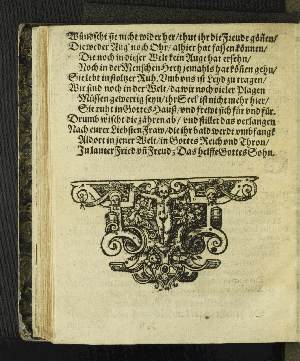 Wündscht sie nicht wider her/ thut ihr die Freude gönnen/
Die weder Aug' noch Ohr/ alhier hat fassen können/
Die noch in dieser Welt kein Auge hat ersehn/
Noch in der Menschen Hertz jemahls hat können gehn/
Sie lebt in stoltzer Ruh. Umb uns ist Leyd zu tragen/
Wir sind noch in der Welt/ da wir noch vieler Plagen
Müssen gewertig seyn/ ihr Seel' ist nicht mehr hier/
Sie ruht in Gottes Hauß/ und frewt sich für und für.
Drumb wischt die zähren ab/ und stillet das verlangen
Nach ewrer Liebsten Fraw/ die ihr bald werdt umbfangē
Aldort in jener Welt/ in Gottes Reich und Thron/
In lauter Fried uñ Freud; Das helffe Gottes Sohn.